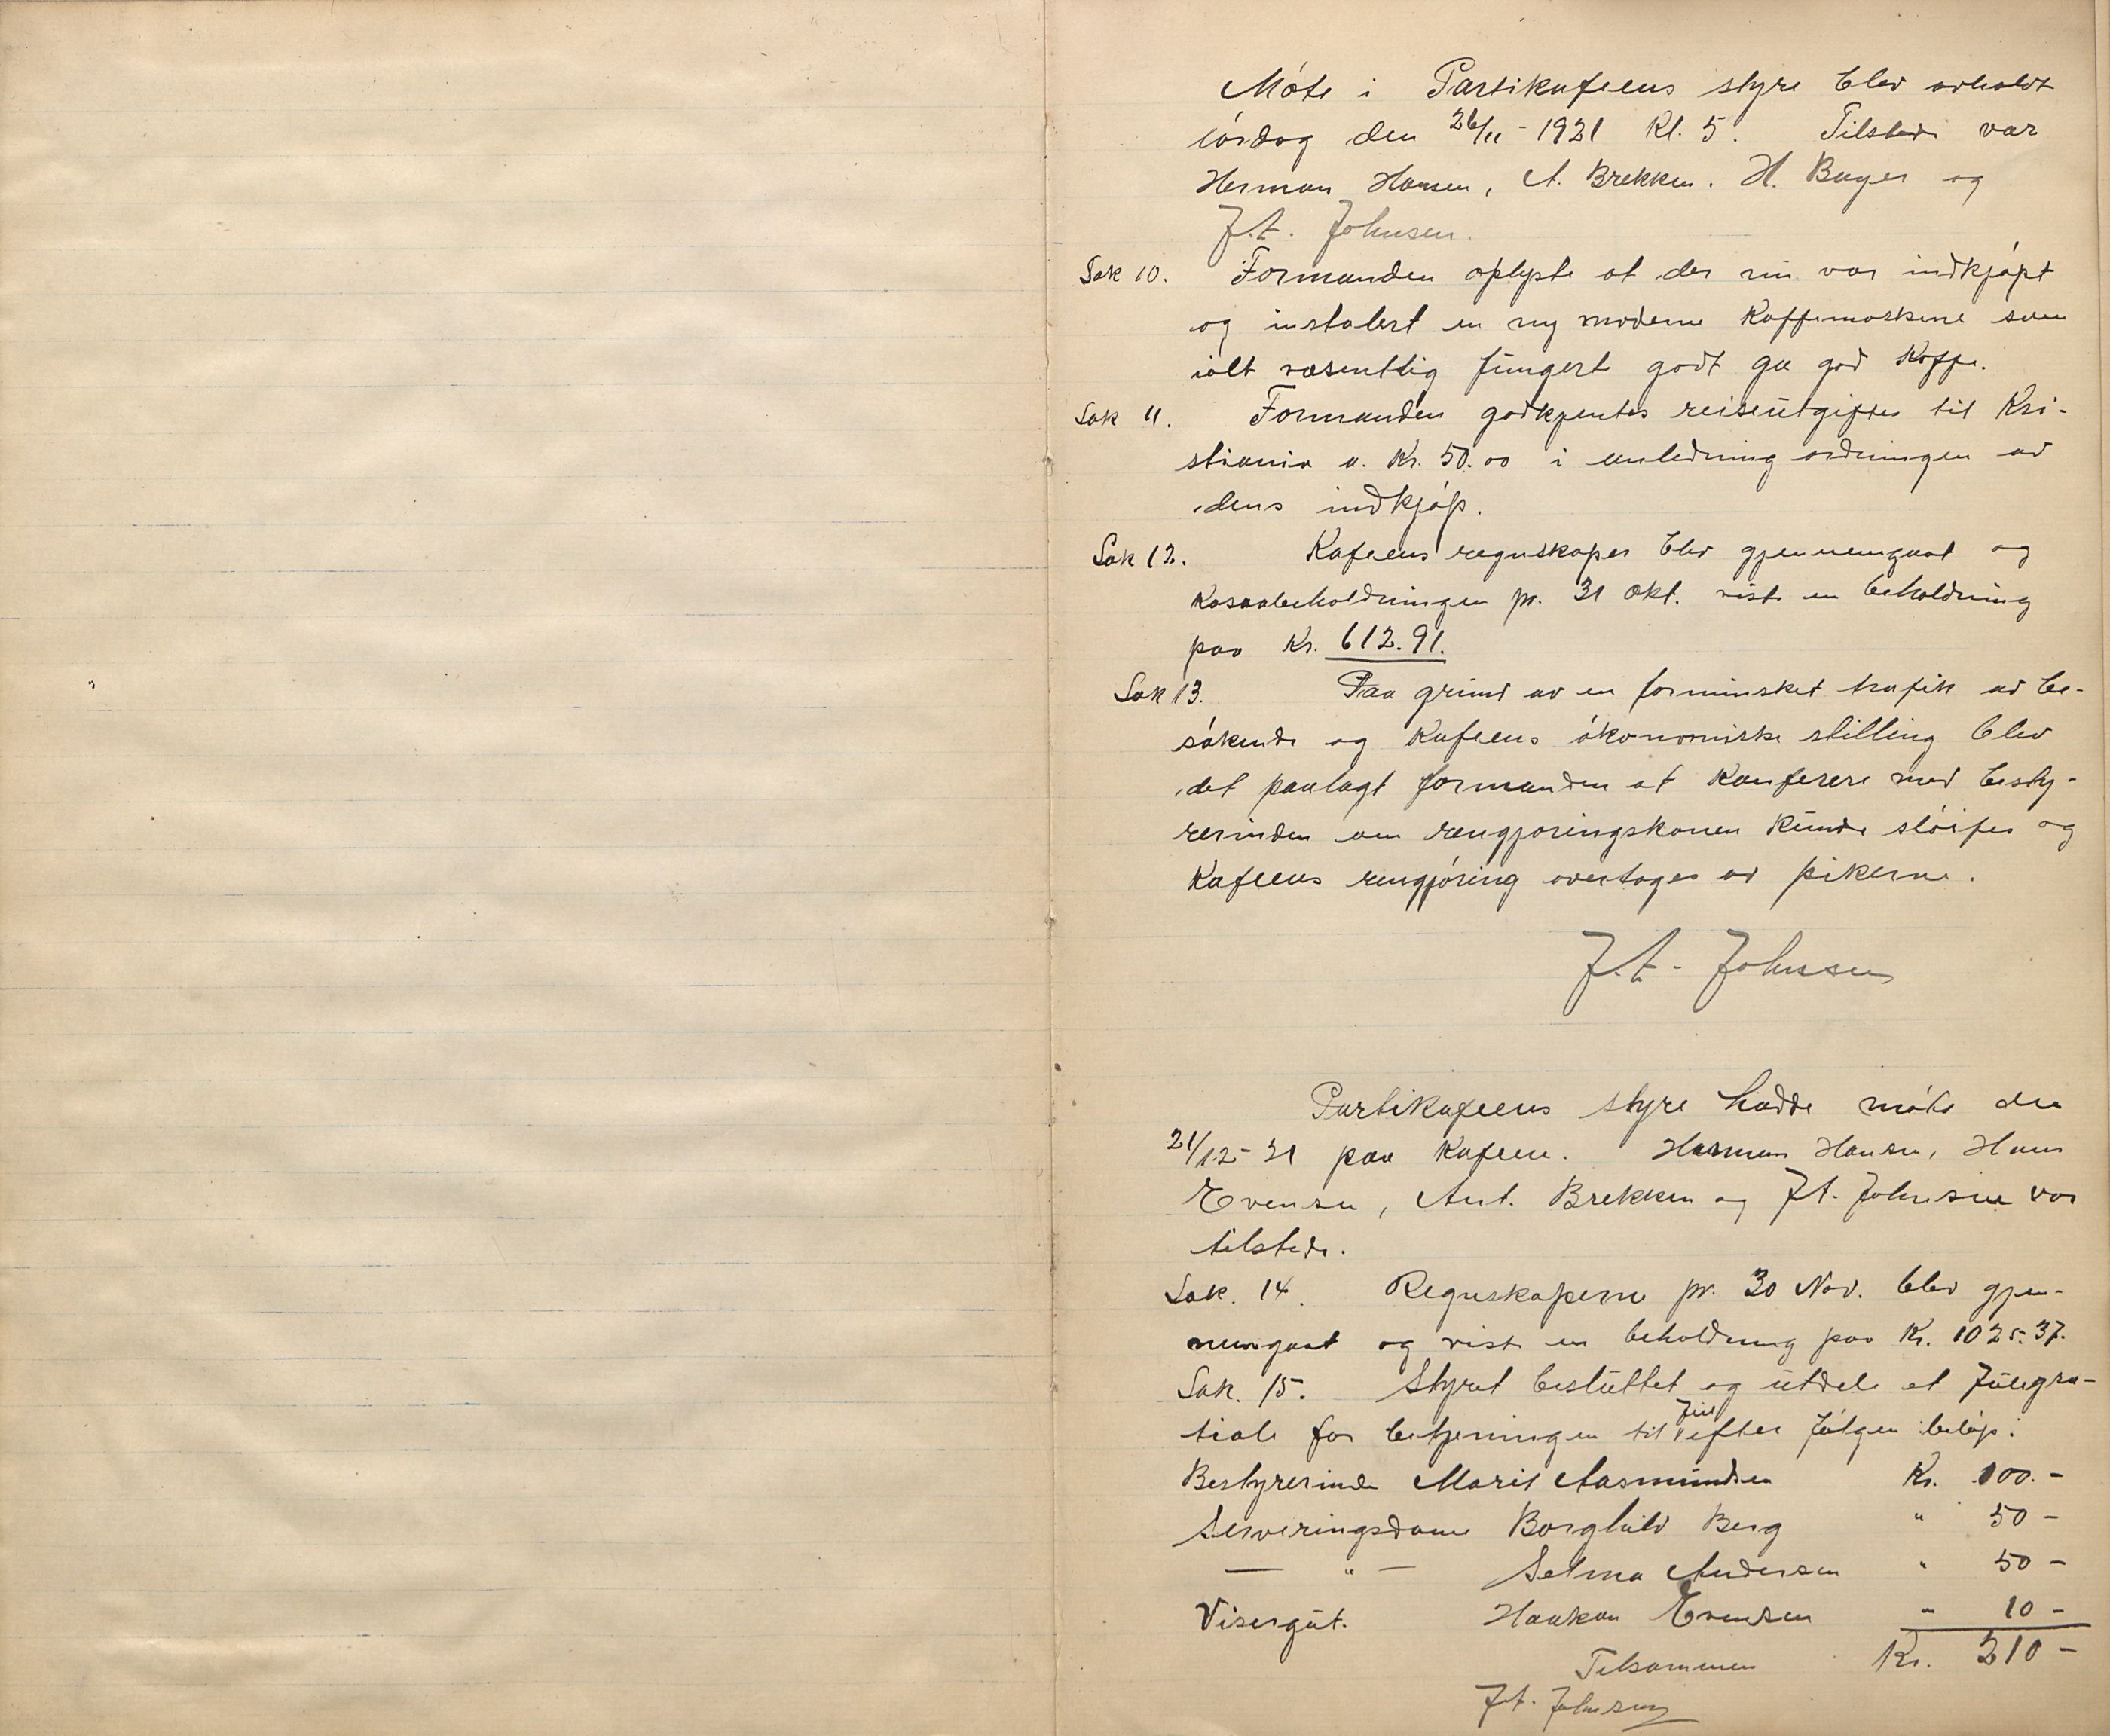 Møte i Partikafeens styre blev avholdt
lørdag den 26/11-1921 kl. 5. Tilstede var
Herman Hansen, A. Brekken. H. Bager og
J.A. Johnsen.
Sak 10. Formanden oplyste at der nu var indkjøpt
og instalert en ny moderne kaffemaskine som
ialt væsentlig fungerte godt ga god kaffe.
Sak 11. Formanden godkjentes reiseutgifter til Kri-
stiania a. Kr. 50.00 i anledning ordningen av
dens indkjøp.
Sak 12. Kafeens regnskaper blev gjennemgaat og
kassabeholdningen pr. 31 Okt. viste en beholdning
paa Kr. 612.91.
Sak 13. Paa grund av en forminsket trafik av be-
søkende og kafeens økonomiske stilling blev
det paalagt formanden at konferere med besty-
rerinden om rengjøringskonen kunde sløifes og
kafeens rengjøring overtages av pikerne.
J.A. Johnsen
Partikafeens styre hadde møte den
21/12-21 paa kafeen. Herman Hansen, Hans
Evensen, Ant. Brekken og J.A. Johnsen var
tilstede.
Sak. 14. Regnskaperne pr. 30 Nov. blev gjen-
nemgaat og viste en beholdning paa Kr. 1025.37.
Sak. 15. Styret besluttet og utdele et julegra-
tiale for betjeningen til Jul efter følgen beløp:
Bestyrerinde Marit Aasmundsen Kr. 100.-
Serveringsdame Borghild Berg " 50 -
— " — Selma Andersen " 50 -
Visergut. Haakon Evensen " 10 -
Tilsammen Kr. 210 -
J.A. Johnsen